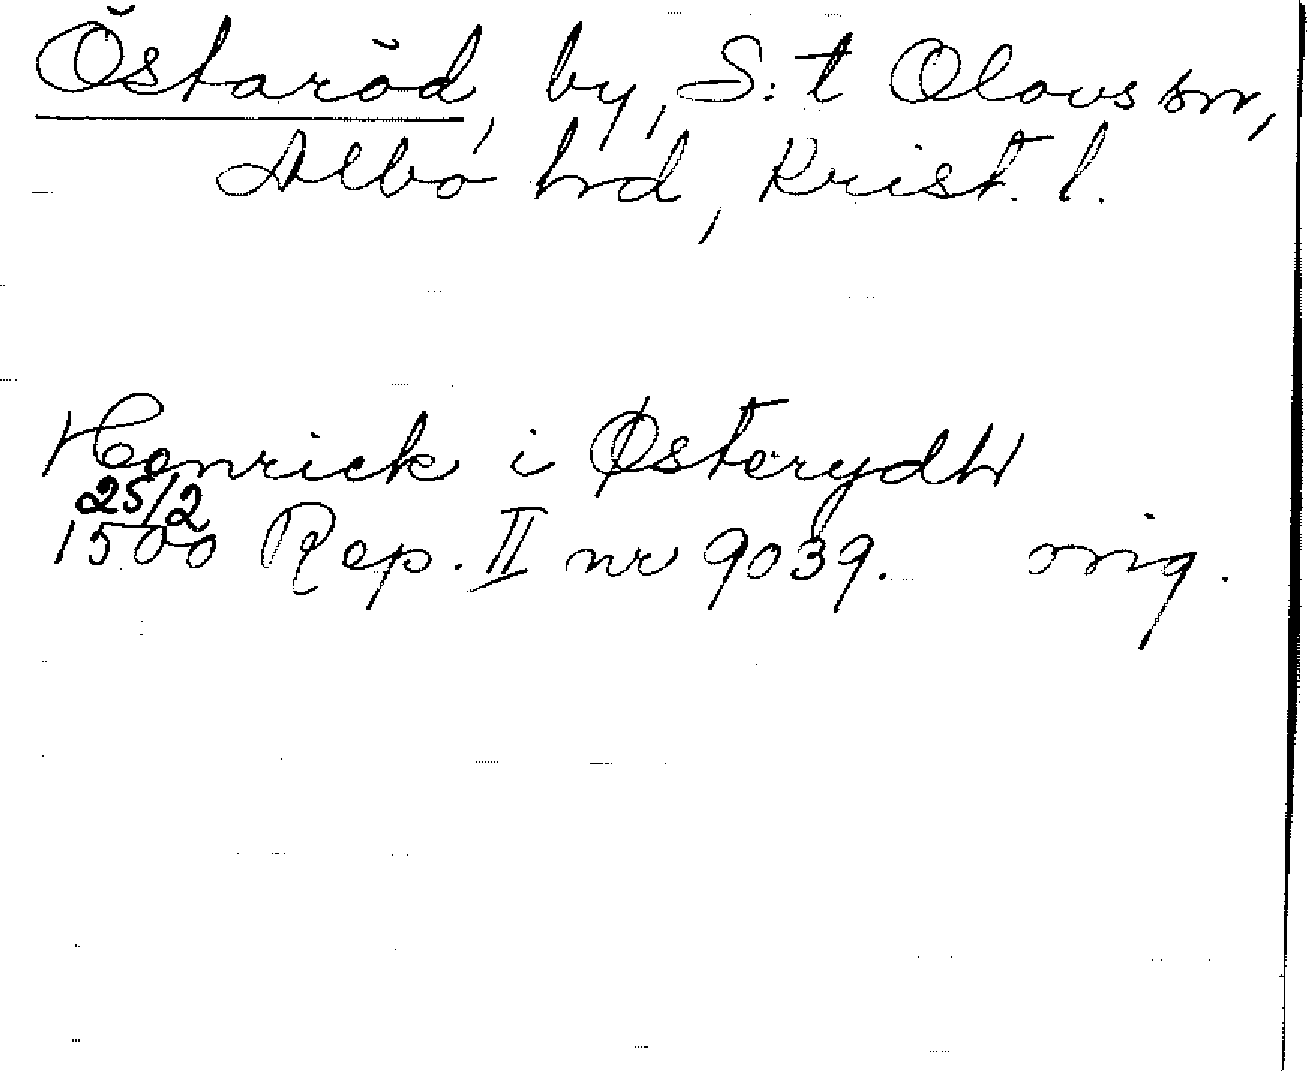 Östaröd, by, S:t Olovs sn,
Albo hd, Krist. l.
Henrick i Østerydh
25/2
1500 Rep. II nr 9039. orig.